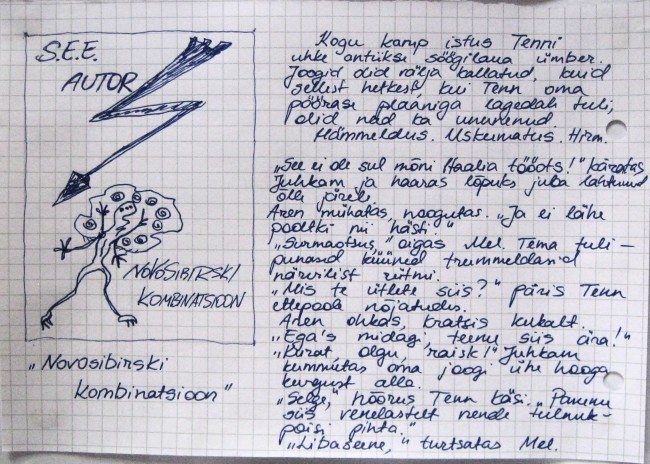 S.E.E.
AUTOR
NOVOSIBIRSKI
KOMBINATSIOON
„Novosibirski
kombinatsioon"
Kogu kamp istus Tenni
uhke antiikse söögilaua ümber.
Joogid olid välja kallatud, kuid
sellest hetkest, kui Tenn oma
pöörase plaaniga lagedale tuli,
olid nad ka ununenud
Hämmeldus. Uskumatus. Hirm.
„See ei ole sul mõni Haalia tööots!" käratas
Juhkam ja haaras lõpuks juba lahtunud
õlle järele.
Aren mühatas, noogutas. „Ja ei lähe
pooltki nii hästi."
„Surmaotsus," oigas Mel. Tema tuli-
punased küüned trummeldasid
närvilist rütmi.
„Mis te ütlete siis?" päris Tenn
ettepoole nõjatudes.
Aren ohkas, kratsis kukalt.
„Ega's midagi, teeme siis ära!"
„Kurat olgu, raisk!" Juhkam
kummutas oma joogi ühe hooga
kurgust alla.
„Selge," hõõrus Tenn käsi. „Paneme
siis venelastelt nende tulnuk-
poisi pihta."
„Libaseene," turtsatas Mel.